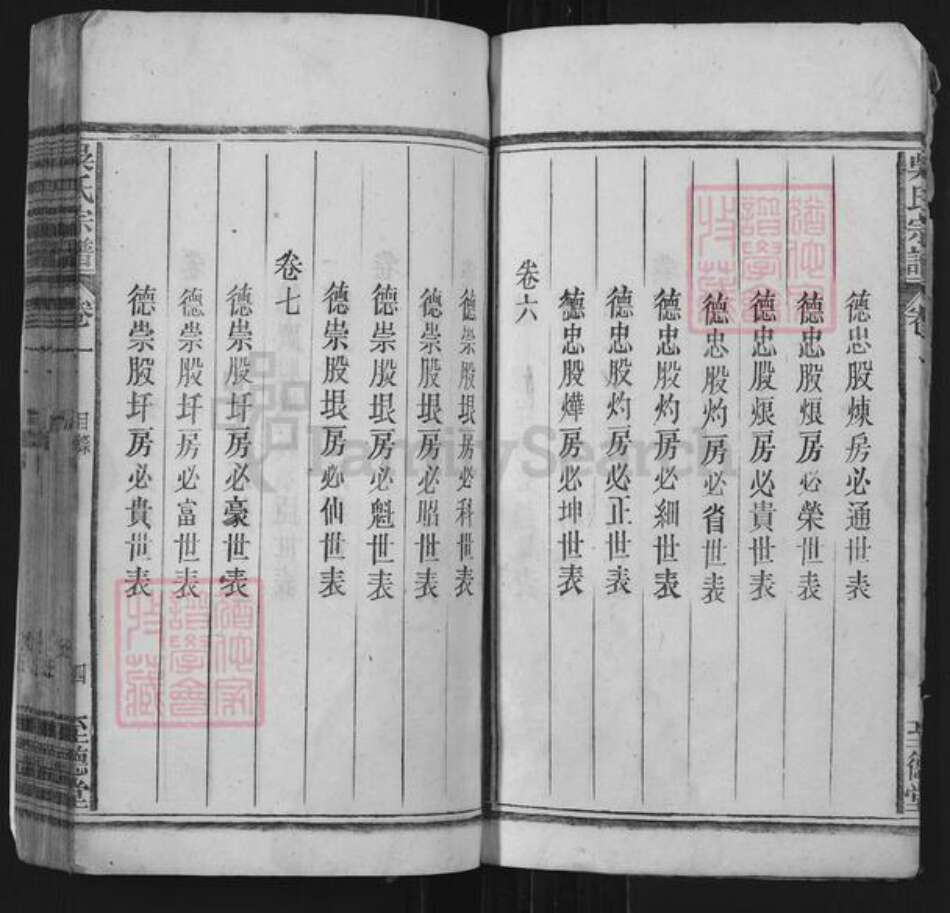 吳氏宗譜
卷
德忠股煉房必通世表
德忠股煨房必榮世表
德忠股煨房必貴世表
德忠股灼房必省世表
德忠股灼房必細世表
德忠股灼房必正世表
德忠股燁房必坤世表
卷六
至德堂
德崇股垠房必科世表
德崇股垠房必昭世表
德崇股垠房必魁世表
德崇股垠房必仙世表
卷七
德崇股圩房必豪世表
德崇股圩房必富世表
德崇股圩房必貴世表
吳氏宗譜
卷一
目錄
四
至德堂
FamilySearch